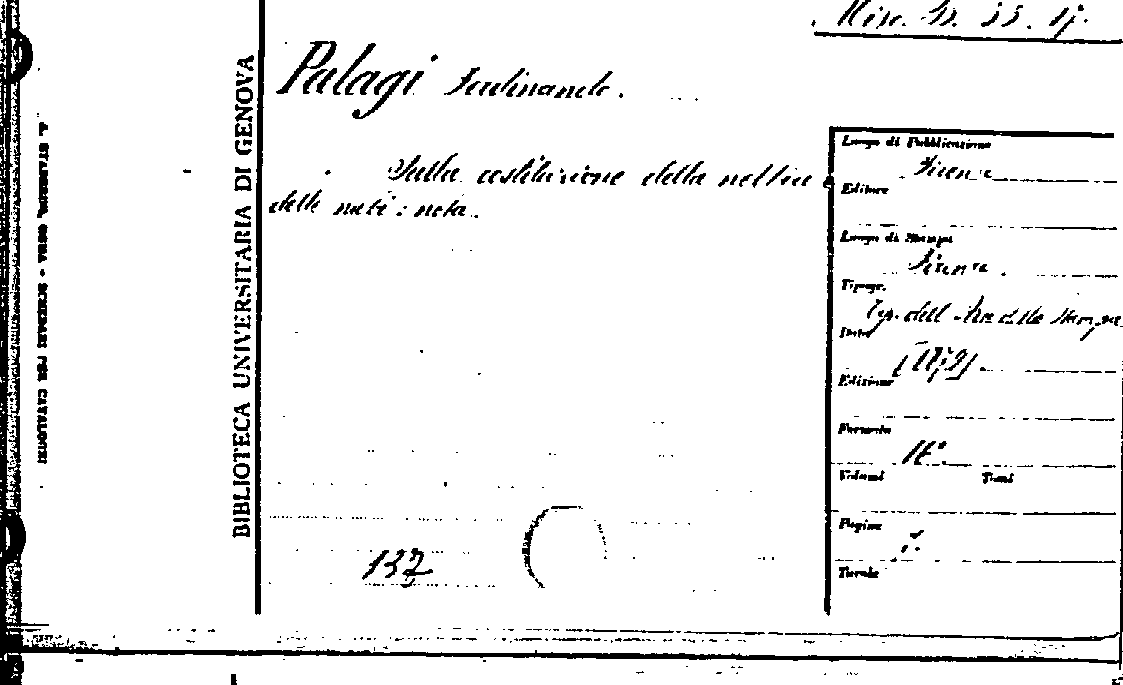 Misc. B. 33. 17.
Palagi Ferdinando.
Sulla costituzione della nebbia e
delle nubi: nota.
BIBLIOTECA UNIVERSITARIA DI GENOVA
SCHEDARI PER CATALOGHI
Luogo di Pubblicazione
Firenze
Editore
Luogo di Stampa
Firenze.
Tipogr.
Tip. dell' Arte della Stampa
Data
Edizione
Formato
Volumi Tomi
Pagine
Tavole
137